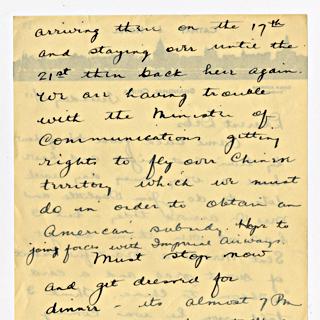 arriving there on the 17th
and staying over until the
21st then back here again.
We are having trouble
with the Minister of
Communications getting
rights to fly over Chinese
territory which we must
do in order to obtain an
American subsidy. Hope to
join forces with Imperial Airways.
Must stop now
and get dressed for
dinner - its almost 7 PM